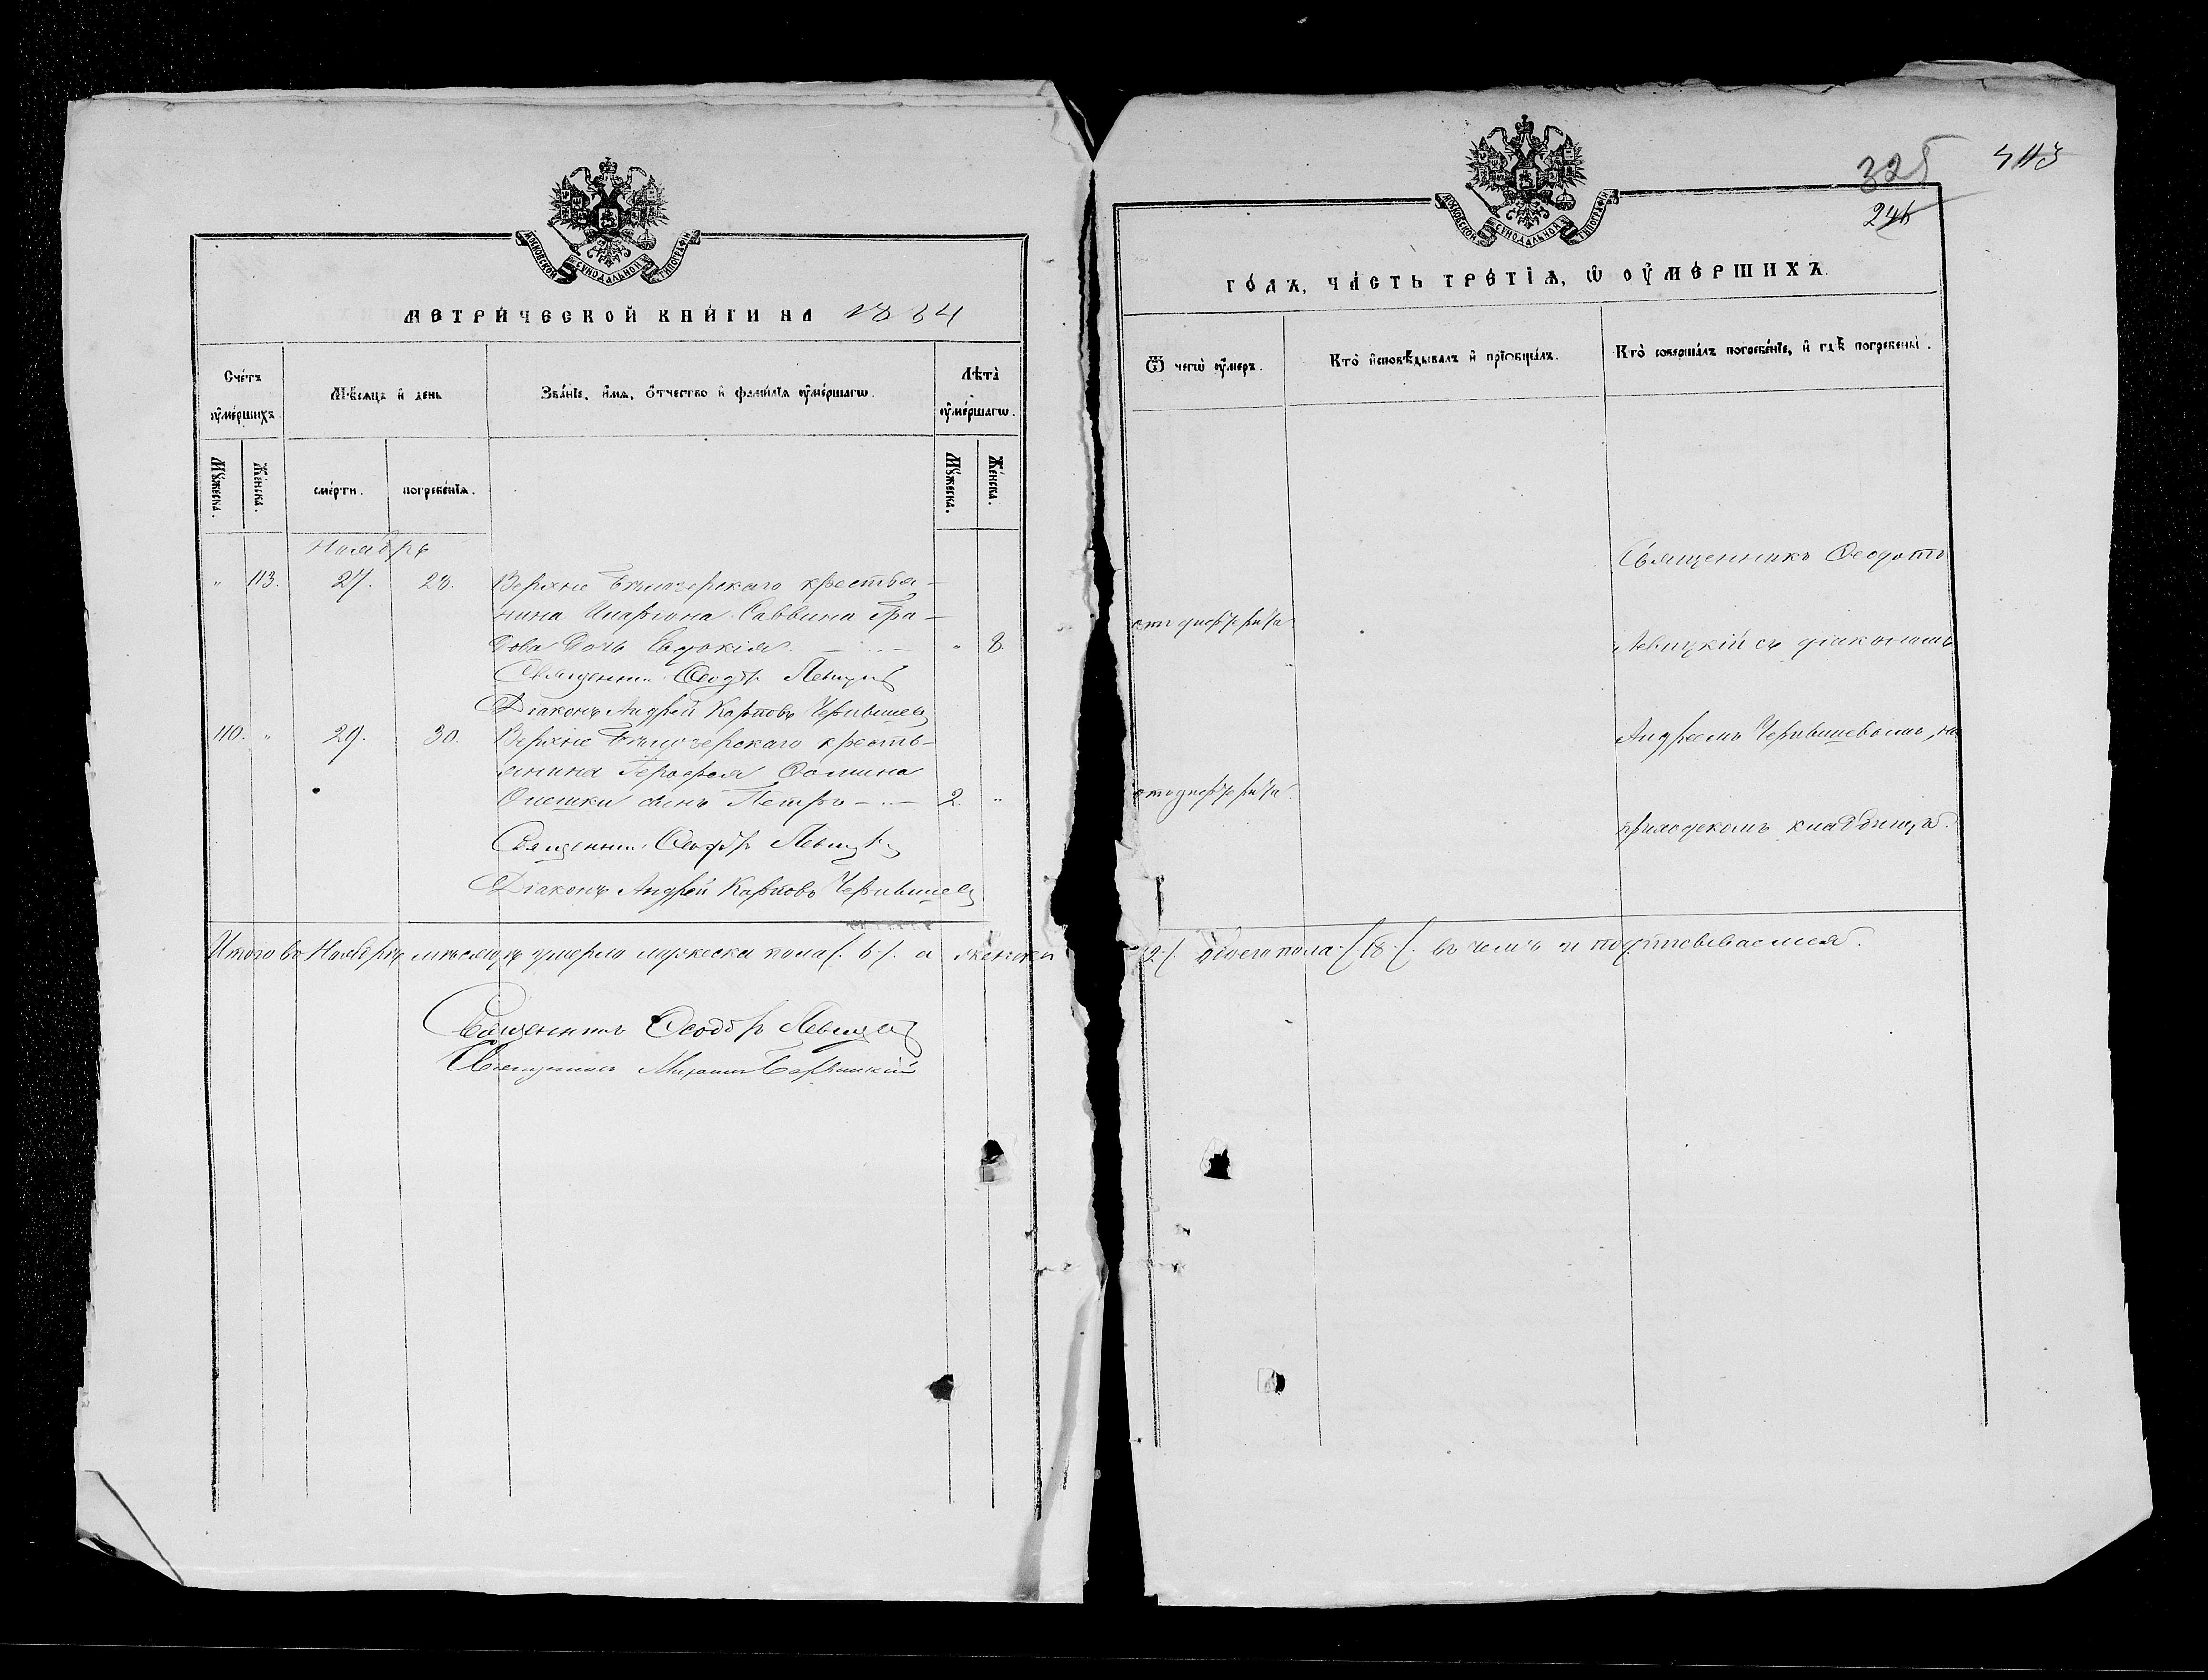 МОСКОВСКОЙ СѴНОДАЛЬНОЙ ТИПОГРАФІИ
МЕТРИ́ЧЕСКОЙ КНИ́ГИ НА 1884
Сче́тъ ᲂу҆ме́ршихъ.
Мѣ́сяцъ и҆ день
Зва́нїе, и҆́мѧ, ѻ҆́тчество и҆ фами́лїѧ ᲂу҆ме́ршагѡ.
Лѣта̀ ᲂу҆ме́ршагѡ.
Мꙋ́жеска.
Же́нска.
сме́рти.
погребе́нїѧ.
Мꙋ́жеска.
Же́нска.
Ноябрь
" 113. 27. 28. Верхне Бѣлозерскаго крестья-
нина Иларіона Саввина Гра-
дова дочь Евдокія. " 8
Священник Ѳеодотъ Левицкій
Діаконъ Андрей Карповъ Чернышев
110. " 29. 30. Верхне Бѣлозерскаго кресть-
янина Ѳомина
сынъ Петръ 2. "
Священник Ѳеодотъ Левицкій
Діаконъ Андрей Карповъ Чернышев
Итого въ Ноябрѣ мѣсяцѣ умерло мужеска пола /. 6 ./. а женска
Священникъ Ѳеодотъ Левицкій
Священникъ Михаилъ
325 403
246
МОСКОВСКОЙ СѴНОДАЛЬНОЙ ТИПОГРАФІИ
ГО́ДЪ, ЧА́СТЬ ТРЕ́ТЇѦ, Ѡ҆ ОУ҆МЕ́РШИХЪ.
Ѿ чегѡ̀ ᲂу҆́меръ.
Кто̀ и҆сповѣ́дывалъ и҆ прїѻбща́лъ.
Кто̀ соверша́лъ погребе́нїе, и҆ гдѣ̀ погребены̀.
Священникъ Ѳеодотъ
отъ дифтерита
Левицкій съ діакономъ
Андреемъ Чернышевымъ, на
отъ дифтерита
приходскомъ кладбищѣ.
12 ./. обоего пола /. 18 ./. въ чемъ и подписываемся.